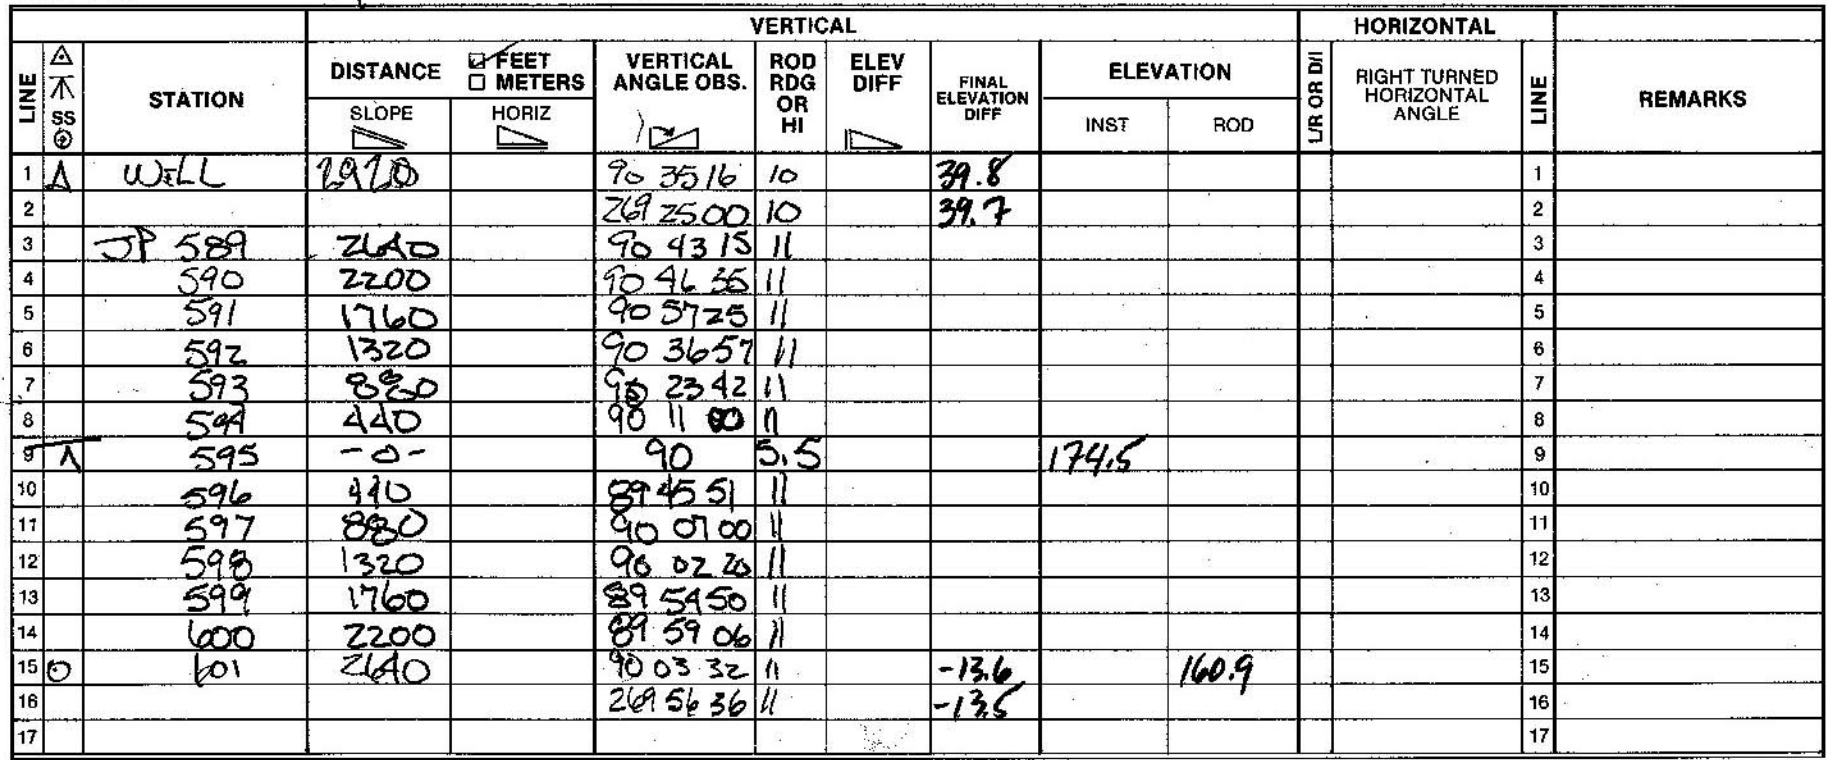 VERTICAL HORIZONTAL
LINE SS STATION DISTANCE ☑ FEET ☐ METERS VERTICAL ANGLE OBS. ROD RDG OR HI ELEV DIFF FINAL ELEVATION DIFF ELEVATION L/R OR D/I RIGHT TURNED HORIZONTAL ANGLE LINE REMARKS
SLOPE HORIZ INST ROD
1 WELL 2920 90 35 16 10 39.8 1
2 269 25 00 10 39.7 2
3 JP 589 2640 90 43 15 11 3
4 590 2200 90 46 35 11 4
5 591 1760 90 57 25 11 5
6 592 1320 90 36 57 11 6
7 593 880 90 23 42 11 7
8 594 440 90 11 00 11 8
9 595 -0- 90 5.5 174.5 9
10 596 440 89 45 51 11 10
11 597 880 90 07 00 11 11
12 598 1320 90 02 20 11 12
13 599 1760 89 54 50 11 13
14 600 2200 89 59 06 11 14
15 601 2640 90 03 32 11 -13.6 160.9 15
16 269 56 36 11 -13.5 16
17 17